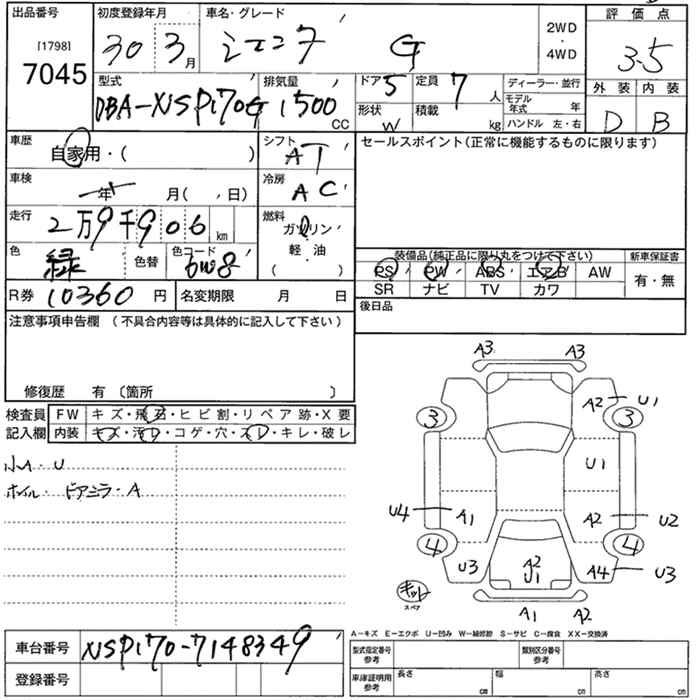 出品番号 初度登録年月 車名・グレード 2WD・4WD 評価点
[1798]
7045 30 3月 シエンタ G 3.5
型式 排気量 ドア 5 定員 7人 ディーラー・並行 外装 内装
DBA-NSP170G 1500CC 形状 W 積載 kg モデル年式 年 D B
ハンドル 左・右
車歴 自家用・( ) シフト AT セールスポイント(正常に機能するものに限ります)
車検 年 月( ,日) 冷房 AC
走行 2万9千906km 燃料 ガソリン・軽・油 ( )
色 緑 色替 色コード 6W8
装備品(純正品に限り丸をつけて下さい) 新車保証書
PS PW ABS エアB AW 有・無
SR ナビ TV カワ
R券 10360円 名変期限 月 日 後日品
注意事項申告欄 (不具合内容等は具体的に記入して下さい)
修復歴 有 〔箇所 〕
検査員 FW キズ・飛石・ヒビ割・リペア跡・X要
記入欄 内装 キズ・汚レ・コゲ・穴・スレ・キレ・破レ
小A・U
ホイル・ドアミラ・A
A3 A3
A2 U1
3 3
U1
U4 A1 A2 U2
4 4
U3 A2 U1 A4 U3
キット
スペア
A1 A2
A-キズ E-エクボ U-凹み W-補修跡 S-サビ C-腐食 XX-交換済
車台番号 NSP170-7148349
登録番号
型式指定番号 参考 類別区分番号 参考
車庫証明用 参考 長さ cm 幅 cm 高さ cm